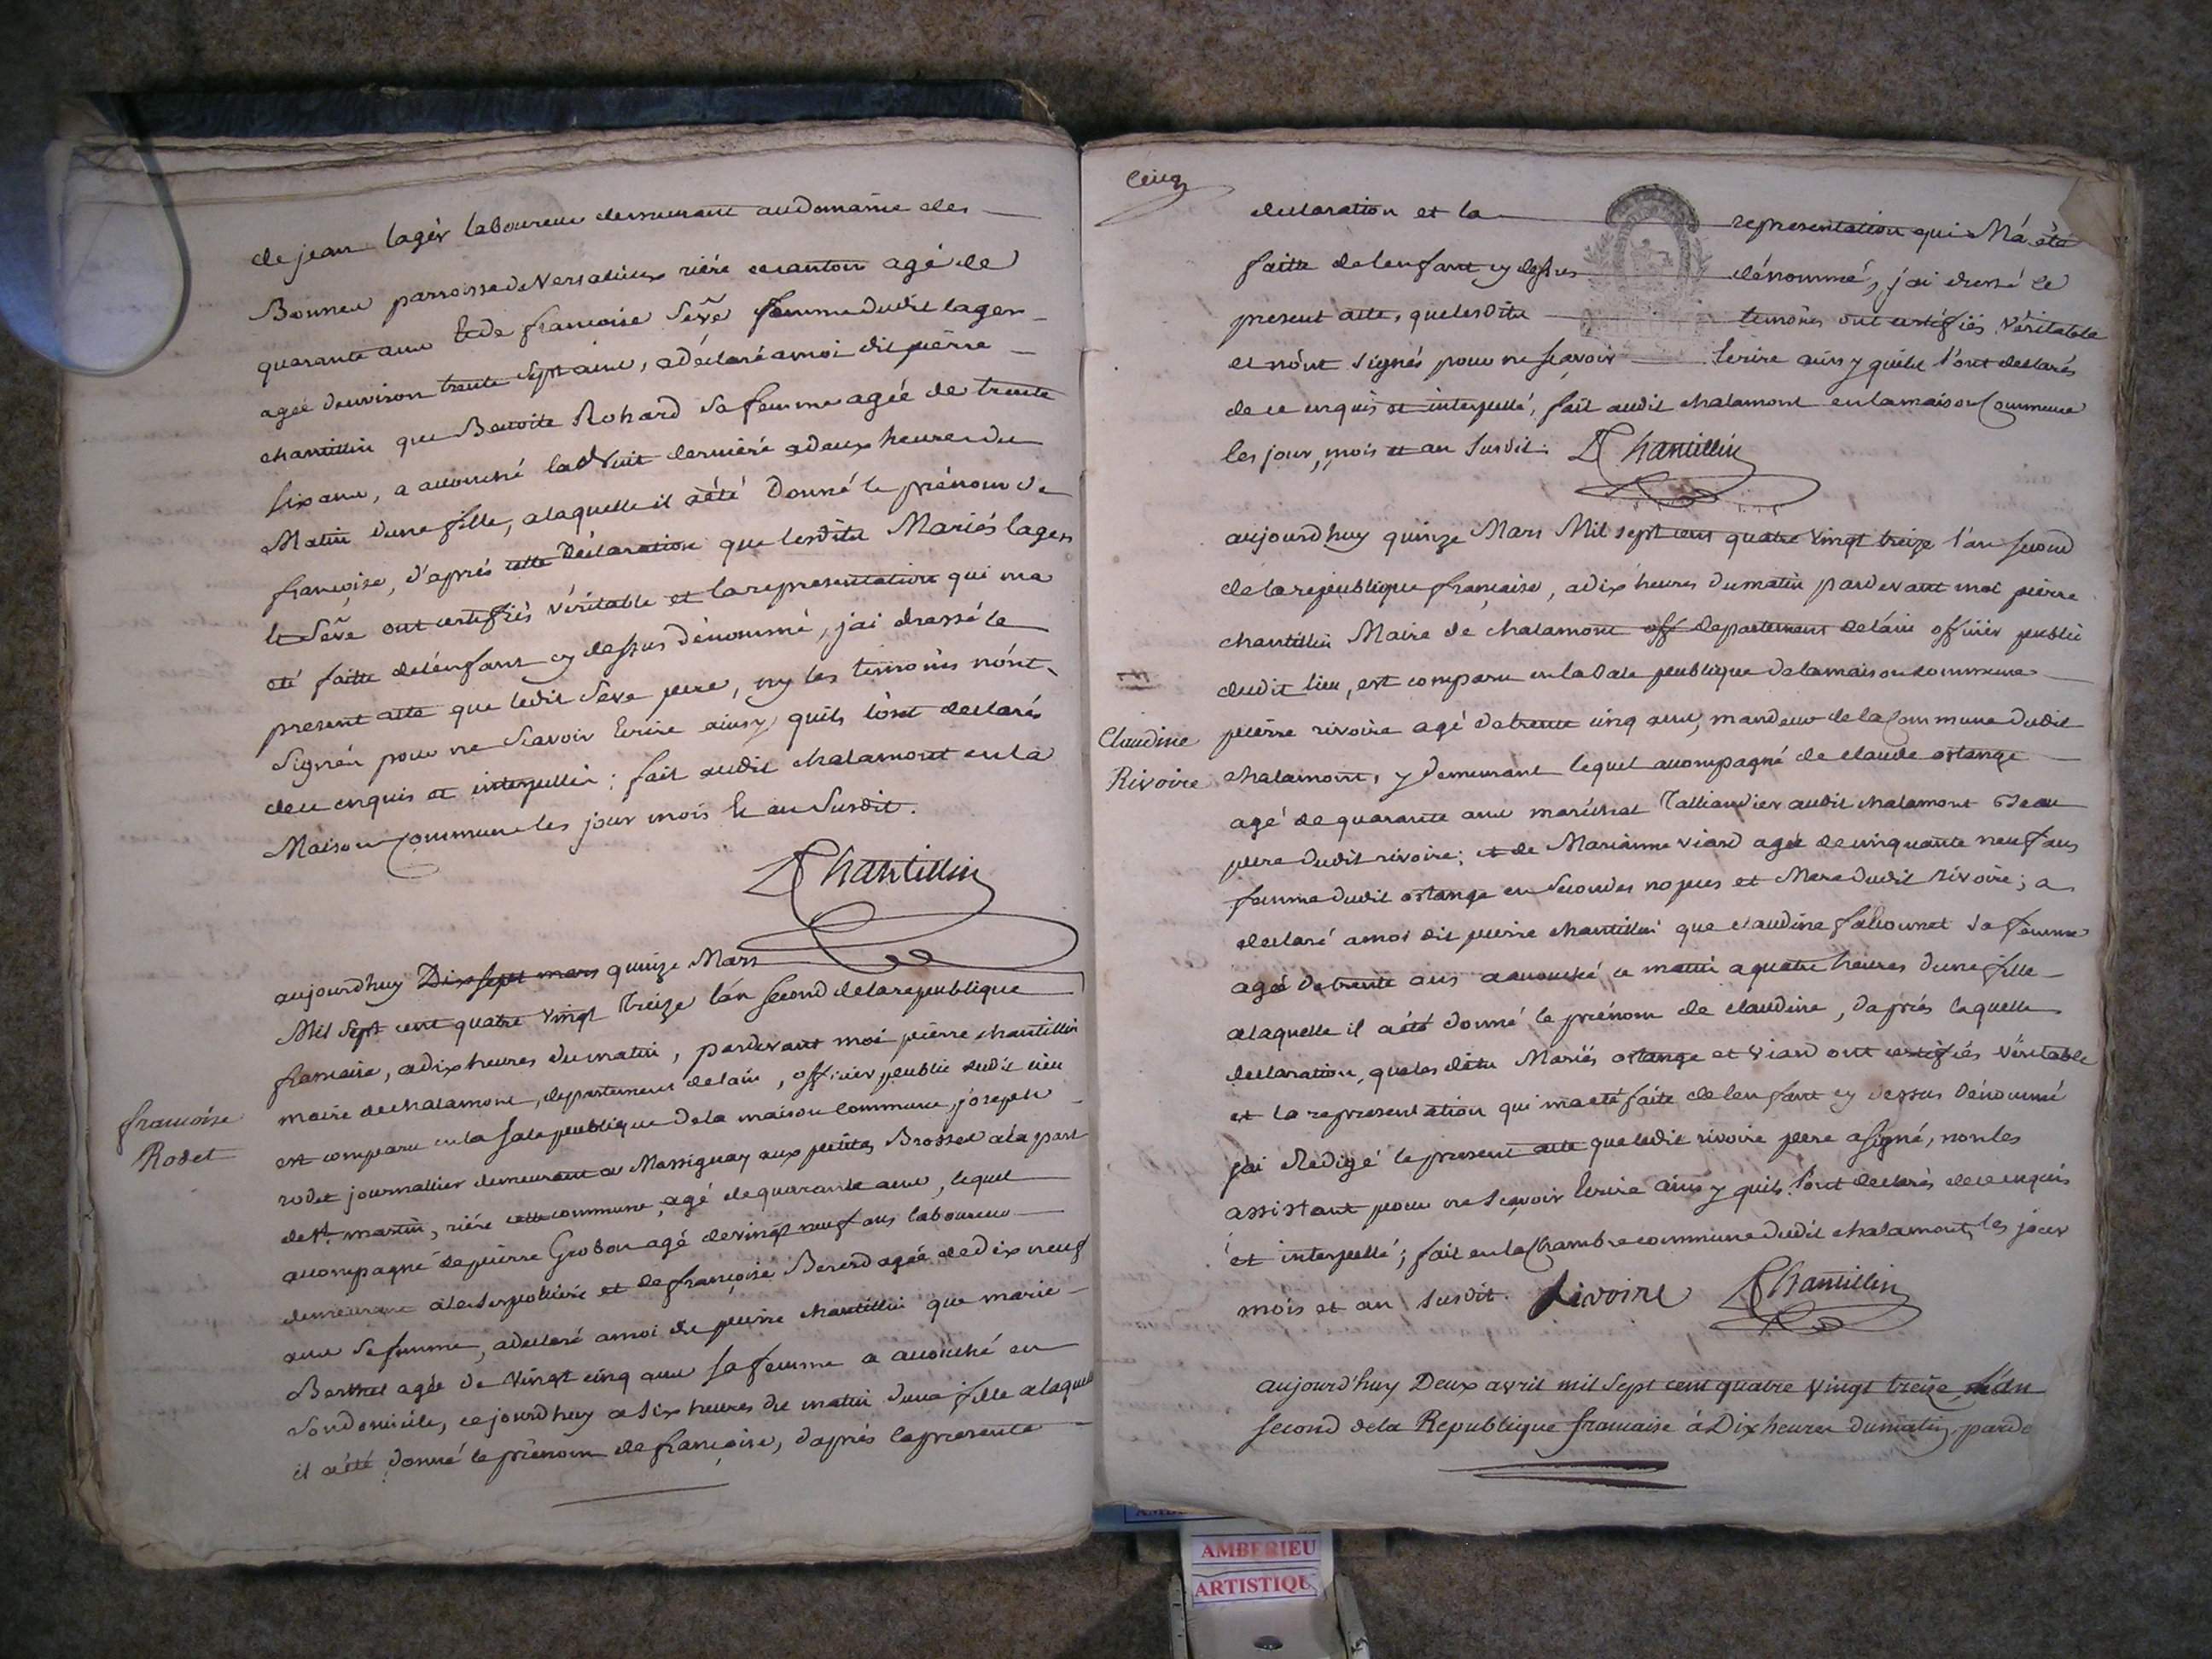 de jean lager laboureur demeurant au domaine des
Bonnes parroisse de Versailleux riére ce canton agé de
quarante ans Et de francoise Séve femme dudit lager
agée denviron trente sept ans, a déclaré a moi dit piérre
chantillin que Benoite Rohard sa femme agée de trente
six ans, a accouché la Nuit derniéré a deux heures du
Matin dune fille, a laquelle il a été Donné le prénom de
françoise, d'aprés cette Déclaration que lesdits Mariés lager
et Séve ont certifiés véritable et la representation qui ma
été faitte de lénfant cy dessus dénommé, j'ai dressé le
present acte que ledit Seve pere, ny les temoins nónt
Signés pour ne Scavoir Ecrire ainsy quils lónt declarés
de ce enquis et interpellés; fait audit chalamont en la
Maison Commune les jour mois Et an Susdit.
P Chantillin
aujourdhuy Dix sept mars quinze Mars
Mil Sept cent quatre vingt Treize lán Second de la republique
francaise, a dix heures du matin, pardevant moi piérre chantillin
maire de chalamont, departement de lain, officier public dudit lieu
est comparu en la sale publique de la maison commune, joseph
francoise
Rodet
rodet journallier demeurant a Massignay aux petites Brosses a la part
de St. martin, riére cette commune, agé de quarante ans, lequel
accompagné de piérre Grobon agé de vingt neuf ans laboureur
demeurant a la Serpolliére et de françoise Bererd agée de Dix neuf
ans sa femme, a declaré a moi dit pierre chantillin que marie
Berthet agée de Vingt cinq ans sa femme a accouché en
Son domicile, ce jourdhuy a Six heures du matin dune fille a laquelle
il a été donné le prénom de françoise, daprés la presente
Cinq
declaration et la representation qui M'a été
faitte de lenfant cy dessus dénommés, j'ai dressé le
present acte, que lesdits temoins ont certifiés Véritable
et nónt signés pour ne sçavoir Ecrire ainsy quils l'ont declarés
de ce enquis et interpellé, fait audit chalamont en la maison Commune
les jour, mois et an Susdit. P Chantillin
aujourdhuy quinze Mars Mil sept cent quatre vingt treize l'an second
de la republique française, a dix heures du matin pardevant moi piérre
chantillin Maire de chalamont off departement de láin officier public
dudit lieu, est comparu en la Sale publique de la maison commune
Claudine
Rivoire
piérre rivoire agé de trente cinq ans, mandeur de la Commune dudit
chalamont, y demeurant lequel accompagné de claude orlange
agé de quarante ans maréchal Talliandier audit chalamont Beau
pere dudit rivoire; et de Marianne viard agée de cinquante neuf ans
femme dudit orlange en Secondes nopces et Mere dudit rivoire; a
declaré a moi dit pierre chantillin que claudine sa femme
agée de trente ans a accouché ce matin a quatre heures dune fille
a laquelle il a été donné le prénom de claudine, daprés laquelle
declaration, que les dits Mariés orlange et viard ont certifiés Véritable
et la representation qui ma été faite de lenfant cy dessus Dénommé
j'ai Redigé le present acte que ledit rivoire pere a signé, non les
assistant pour ne sçavoir Ecrire ainsy quils l'ont declarés de ce enquis
et interpellé; fait en la Chambre commune dudit chalamont, les jour
mois et an susdit. Rivoire P Chantillin
aujourd'huy Deux avril mil Sept cent quatre vingt treize, l'an
second de la Republique francaise à Dix heures du matin, parde
AMBERIEU
ARTISTIQU